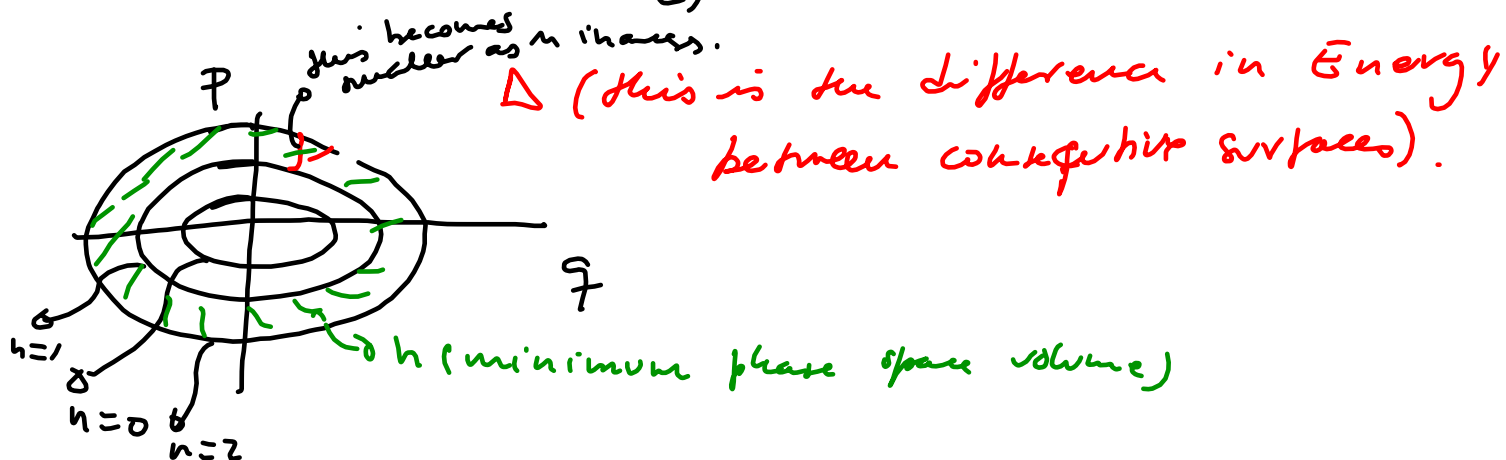 this becomes
smaller as n increases.
P
Δ (this is the difference in Energy
between consequtive surfaces).
q
h (minimum phase space volume)
n=1
n=0
n=2